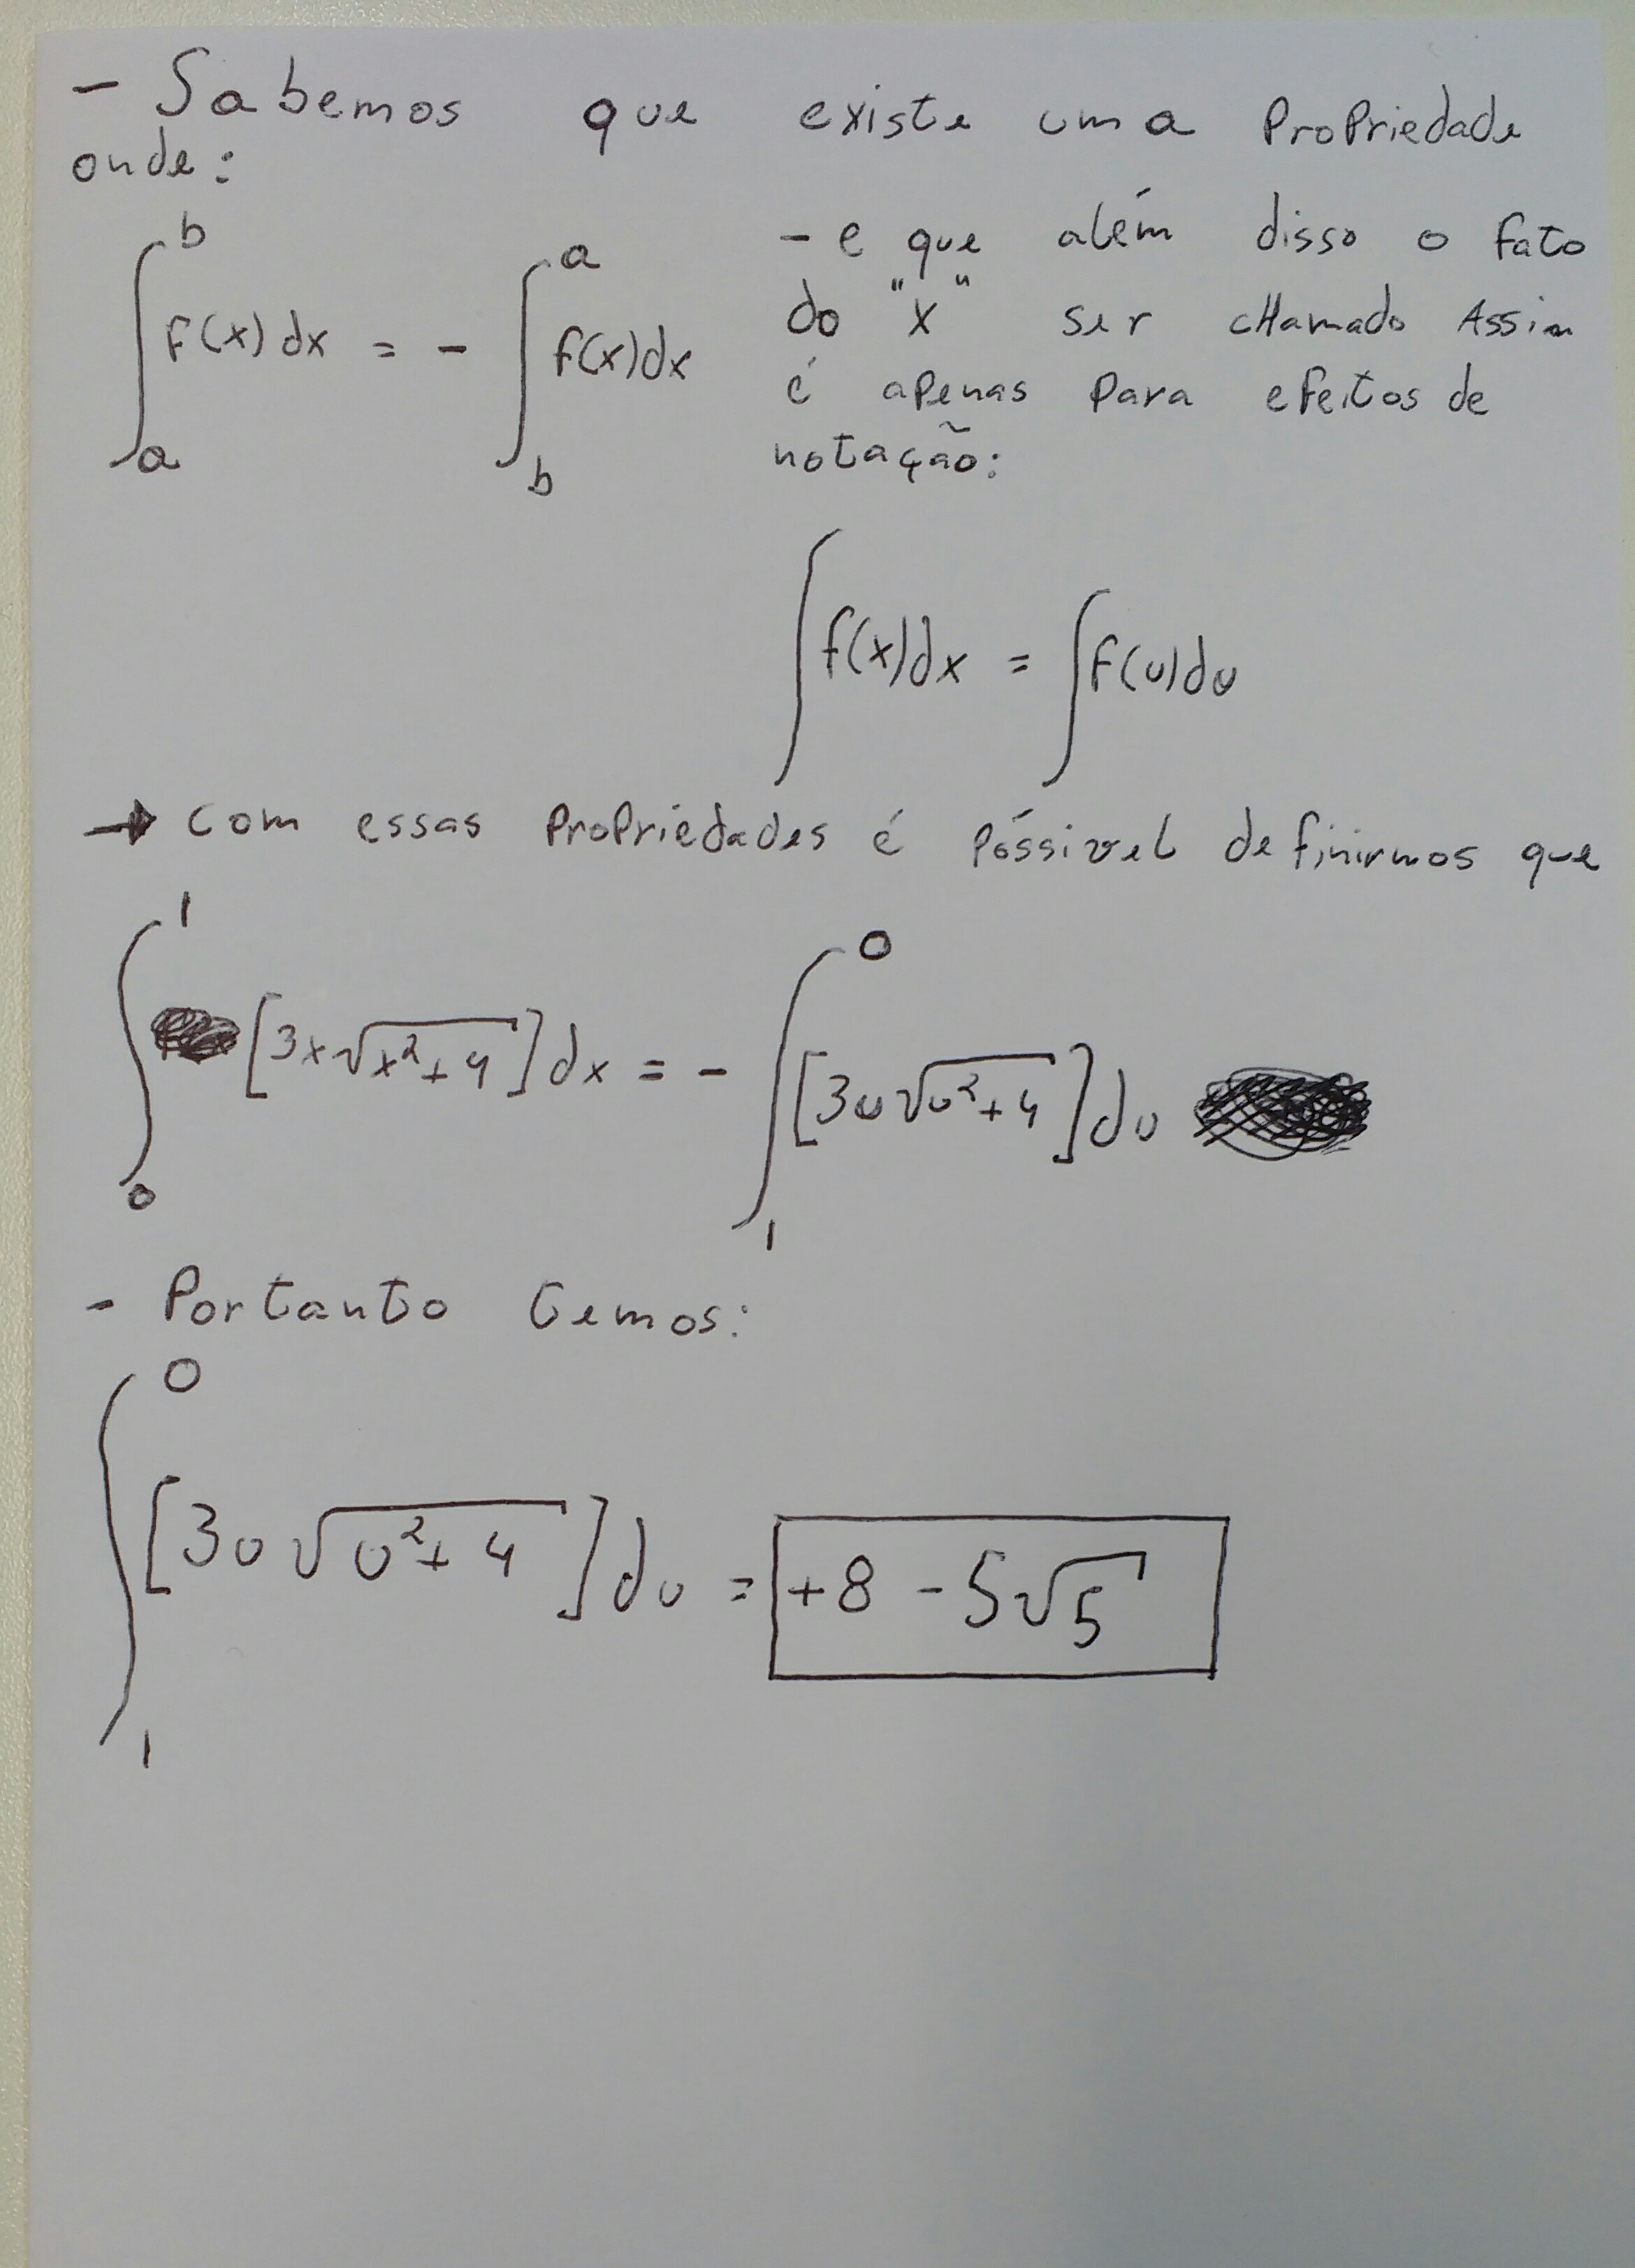 - Sabemos que existe uma Propriedade
onde:
∫_a^b f(x)dx = - ∫_b^a f(x)dx
- e que além disso o fato
do "x" ser cHamado Assim
é apenas para efeitos de
notação:
∫f(x)dx = ∫f(u)du
→ com essas Propriedades é póssivel definirmos que
∫_0^1 [3x√(x²+4)]dx = - ∫_1^0 [3u√(u²+4)]du
- Portanto temos:
∫_1^0 [3u√(u²+4)]du = +8 - 5√5